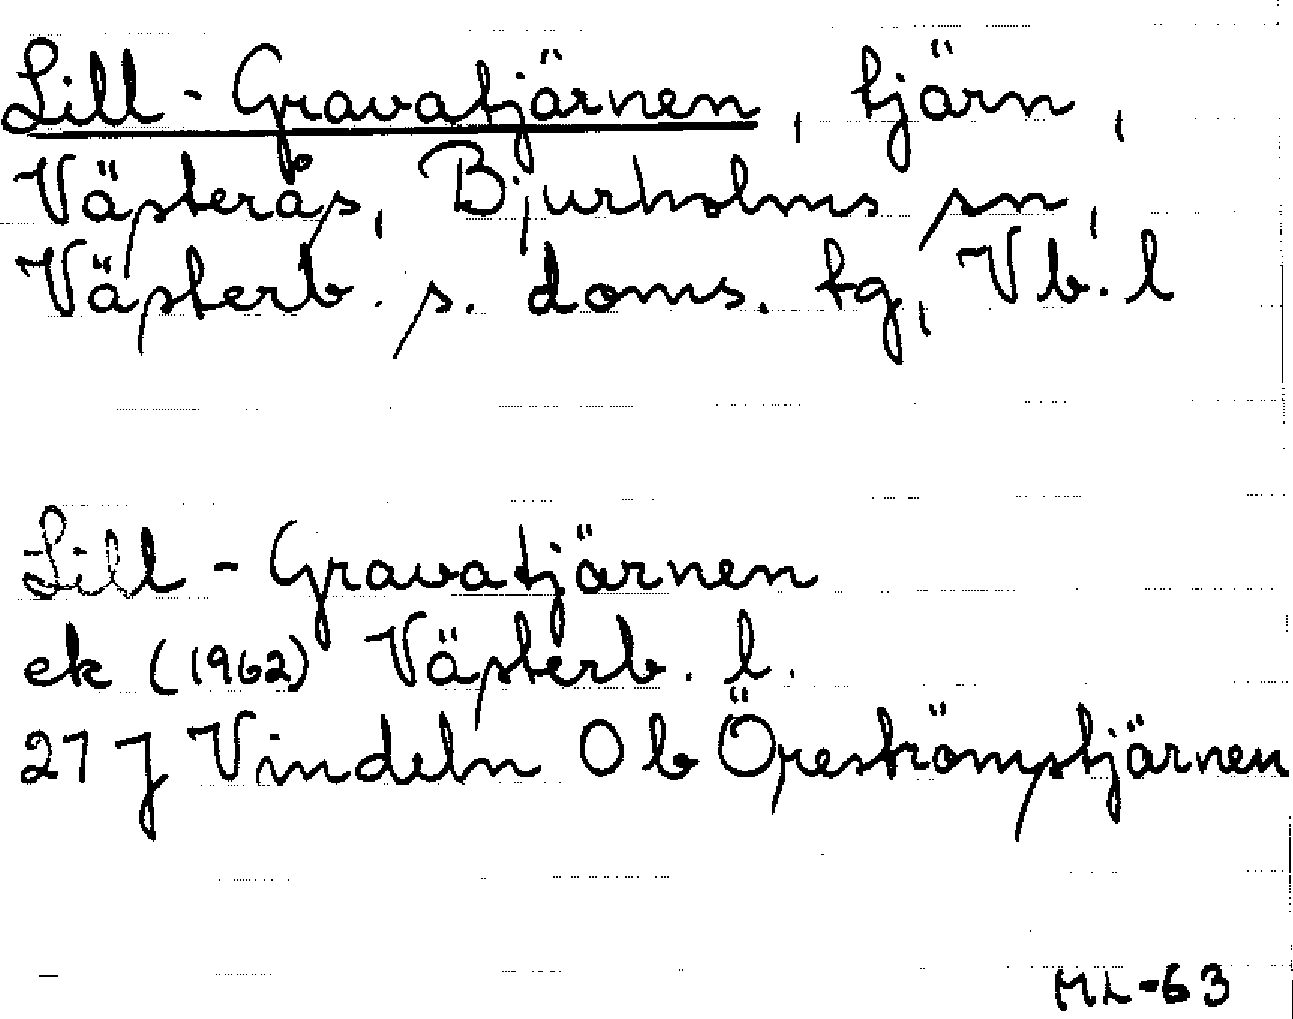 Lill-Gravatjärnen, tjärn,
Västerås, Bjurholms sn,
Västerb. s. doms. tg, Vb. l
Lill-Gravatjärnen
ek (1962) Västerb. l.
27 J Vindeln 0 b Öreströmstjärnen
ML-63